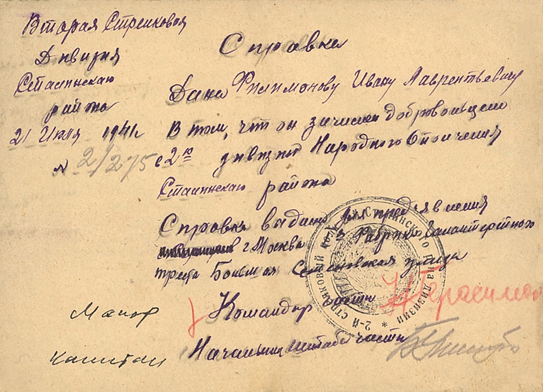 Вторая Стрелковая
Дивизия
Сталинского
района
21 Июля 1941 г
№ 2/275
Справка
Дана Филимонову Ивану Лаврентьевичу
В том, что он зачислен добровольцем
с 2ю дивизию Народного Ополчения
Сталинского района
Справка выдана для предъявления
в г. Москва 3 Фабрика
треста Большая Семеновская улица
Майор Командир части Герасимов
Капитан Начальник штаба части